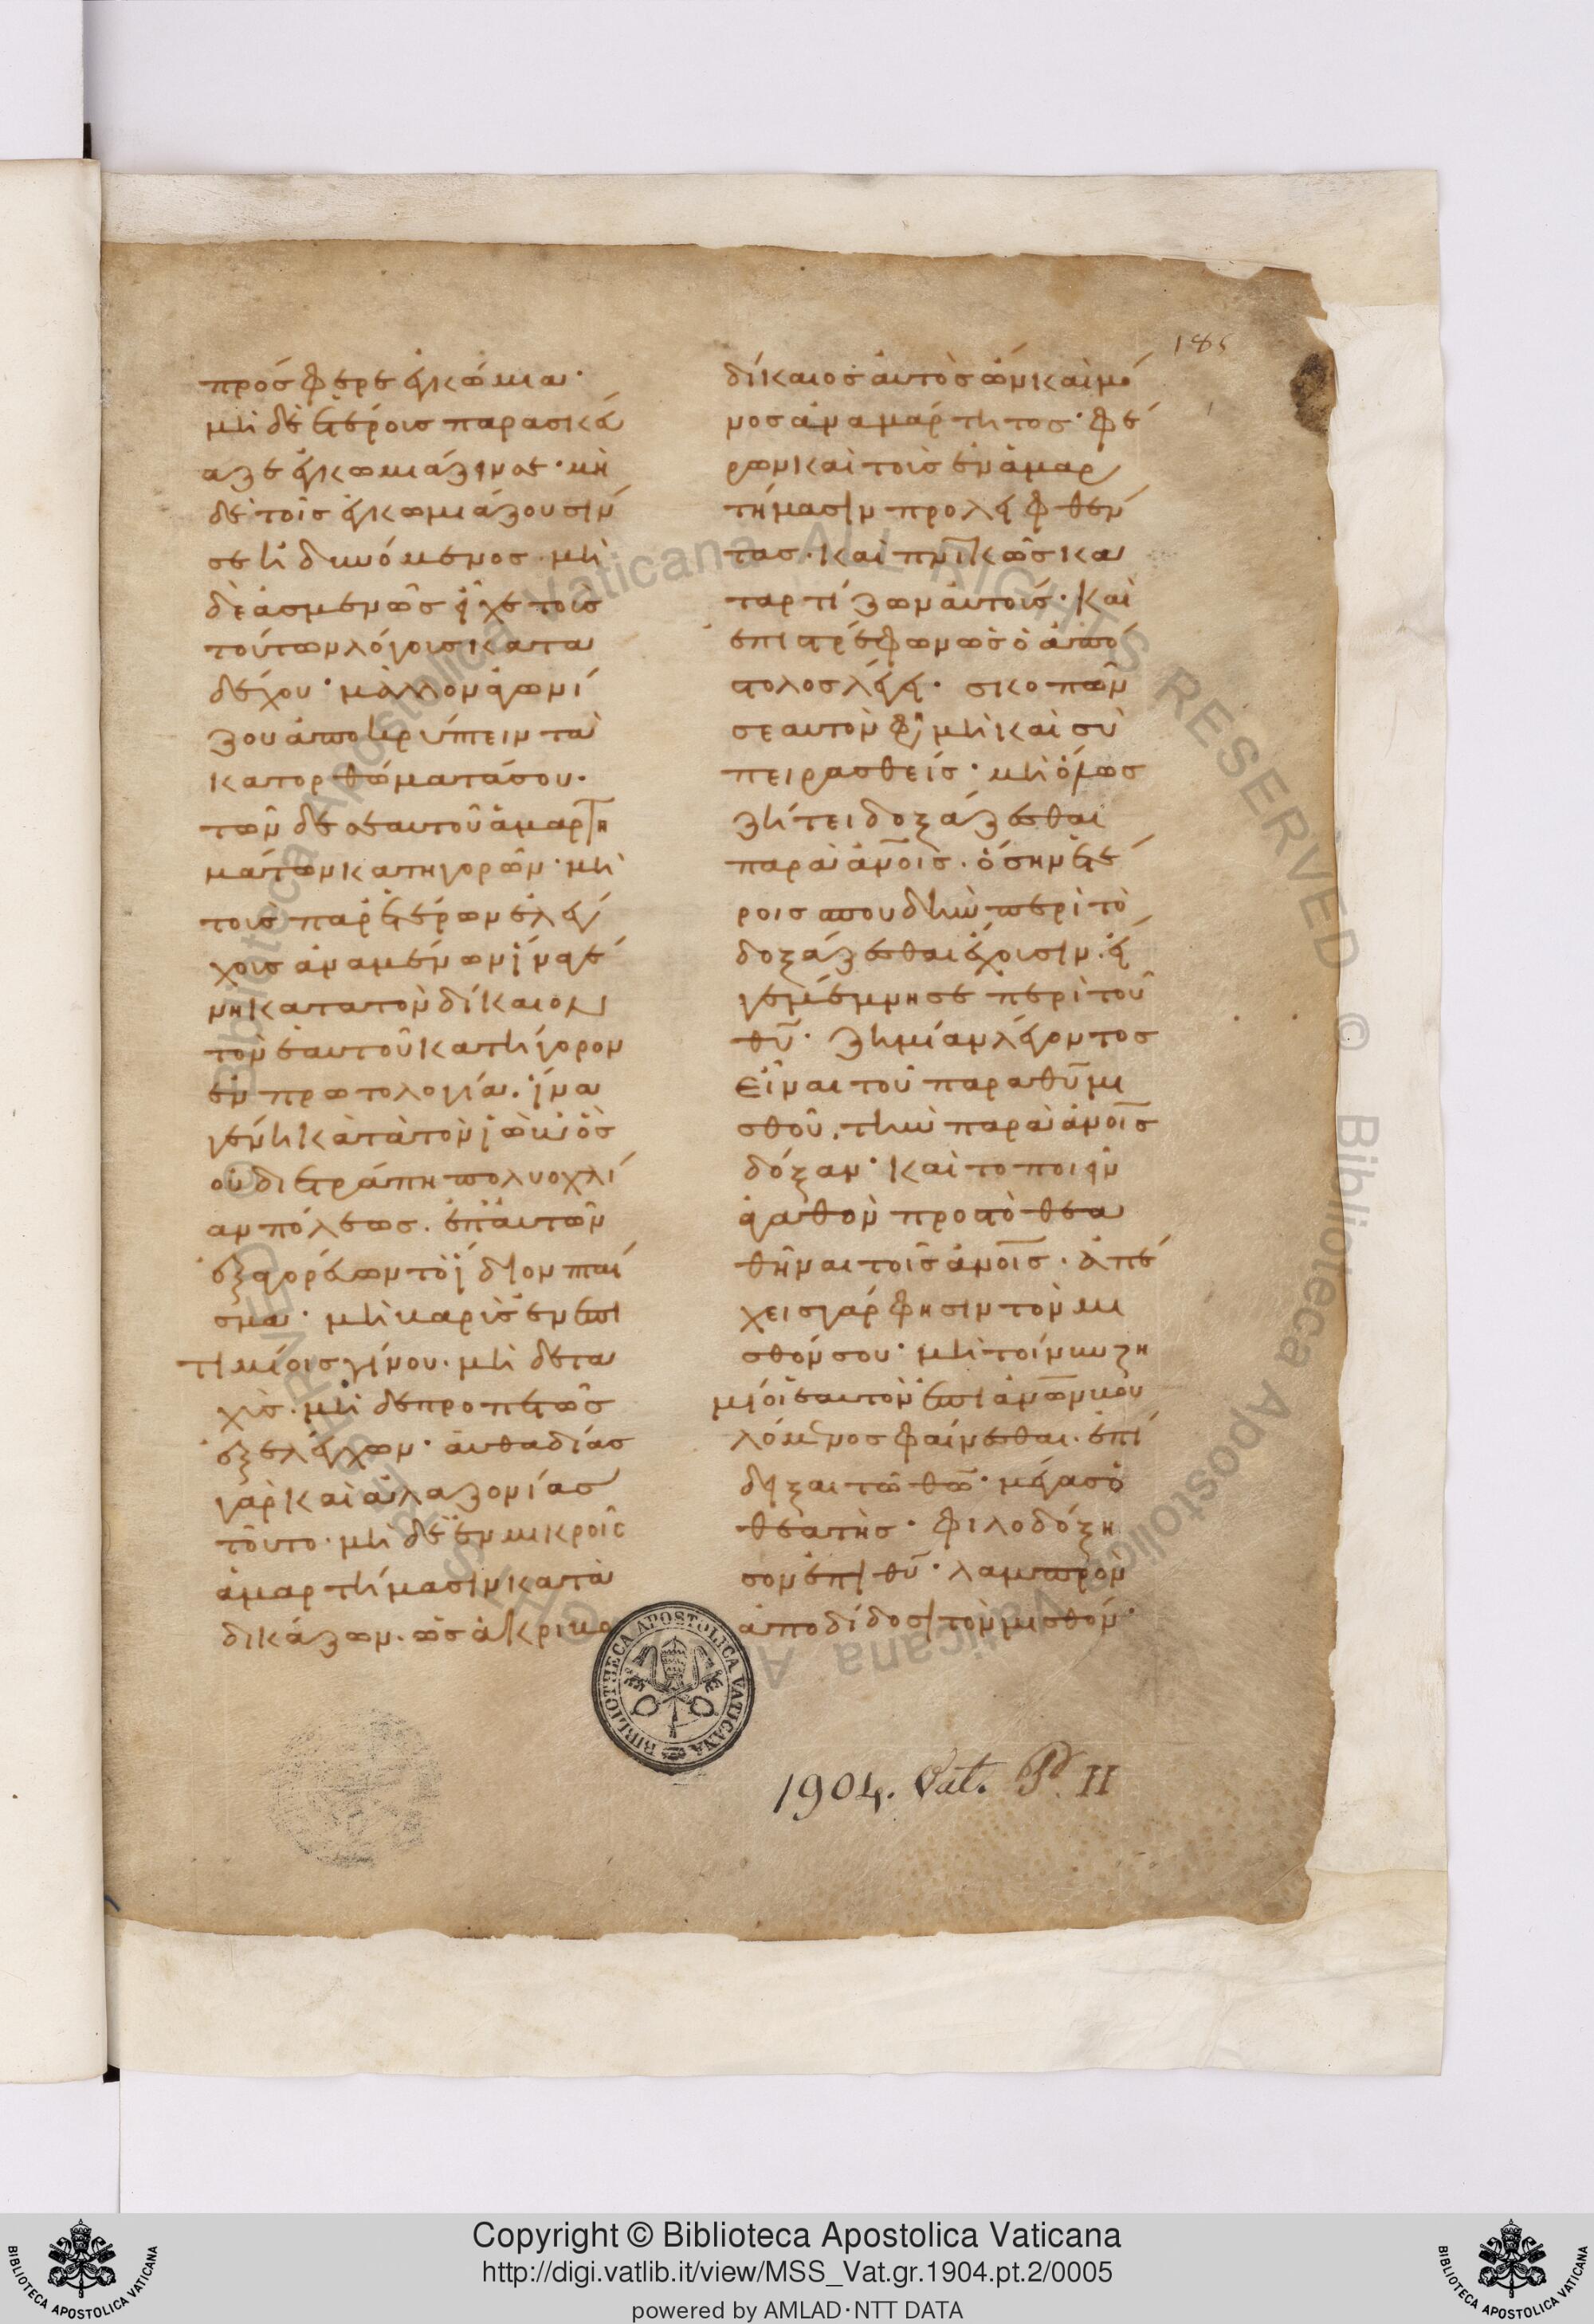 185
πρόσφερε ἐγκώμια·
μὴ δὲ ἑτέροις παρασκέυ
αζε ἐγκωμιάζειν σε· μὴ
δὲ τοῖς ἐγκωμιάζουσίν
σε ἡδυνόμενος· μὴ
δὲ ἀσμένως εἶχε τοῖς
τούτων λόγοις κατα
δέχου· μᾶλλον ἀγωνί
ζου ἀποκρύπτειν τὰ
κατορθώματά σου·
τῶν δὲ σεαυτοῦ ἁμαρτη
μάτων κατηγορῶν· μὴ
τοὺς παρ ἑτέρων ἐλέγ
χους ἀναμένων ἵνα γέ
νη κατα τὸν δίκαιον
τὸν ἑαυτοῦ κατήγορον
ἐν πρωτολογία. ἵνα
γένη κατὰ τὸν ἰὼβ ὃς
οὐ διετράπη πολυοχλί
αν πόλεως. ἐπ αυτῶν
ἐξαγορέυων τὸ ἴδιον πταί
σμα· μὴ βαρὺς ἐν ἐπι
τιμίοις γίνου· μὴ δὲ τα
χὺς· μὴ δὲ προπετῶς
ἐξελέγχων· ἀυθαδίας
γὰρ καὶ ἀλαζονίας
τοῦτο· μὴ δὲ ἐν μικροῖς
ἁμαρτήμασιν κατα
δικάζων· ὡς ἀκριβο
δίκαιος αὐτὸς ὢν καὶ μό
νος ἀναμάρτητος· φέ
ρων καὶ τοὺς ἐν ἁμαρ
τήμασιν προληφθέν
τας· καὶ πνικῶς κα
ταρτίζων αὐτούς· καὶ
ἐπιστρέφων ὡς ὁ ἀπό
στολος λέγει· σκοπῶν
σεαυτὸν φη μὴ καὶ σὺ
πειρασθεῖς· μὴ ὅλως
ζήτει δοξάζεσθαι
παρὰ ἀνοις· ὅσην ἑτέ
ροις σπουδὴν περὶ τὸ
δοξάζεσθαι ἔχουσιν· ἔι
γε μέμνησε περὶ τοῦ
θυ· ζημίαν λέγοντος
εἶναι τοῦ παρα θυ μι
σθοῦ, τὴν παρὰ ἀνοις
δόξαν· καὶ το ποιεῖν
ἀγαθὸν πρὸς τὸ θεα
θῆναι τοῖς ἀνοις· ἀπέ
χεις γάρ φησιν τὸν μι
σθόν σου· μὴ τοίνυν ζη
μιοῖ σεαυτὸν ἐπὶ ἀνων βου
λόμενος φαίνεσθαι· ἐπί
δειξαι τῶ θῶ· μέγας ὁ
θεατὴς· φιλοδόξη
σον ἐπὶ θυ· λαμπρὸν
ἀποδίδοσι τὸν μισθόν·
BIBLIOTHECA APOSTOLICA VATICANA
1904. Vat. Pᵃ. II
© Biblioteca Apostolica Vaticana ALL RIGHTS RESERVED © Biblioteca Apostolica Vaticana ALL RIGHTS RESERVED
Copyright © Biblioteca Apostolica Vaticana
http://digi.vatlib.it/view/MSS_Vat.gr.1904.pt.2/0005
powered by AMLAD·NTT DATA
BIBLIOTECA APOSTOLICA VATICANA
BIBLIOTECA APOSTOLICA VATICANA